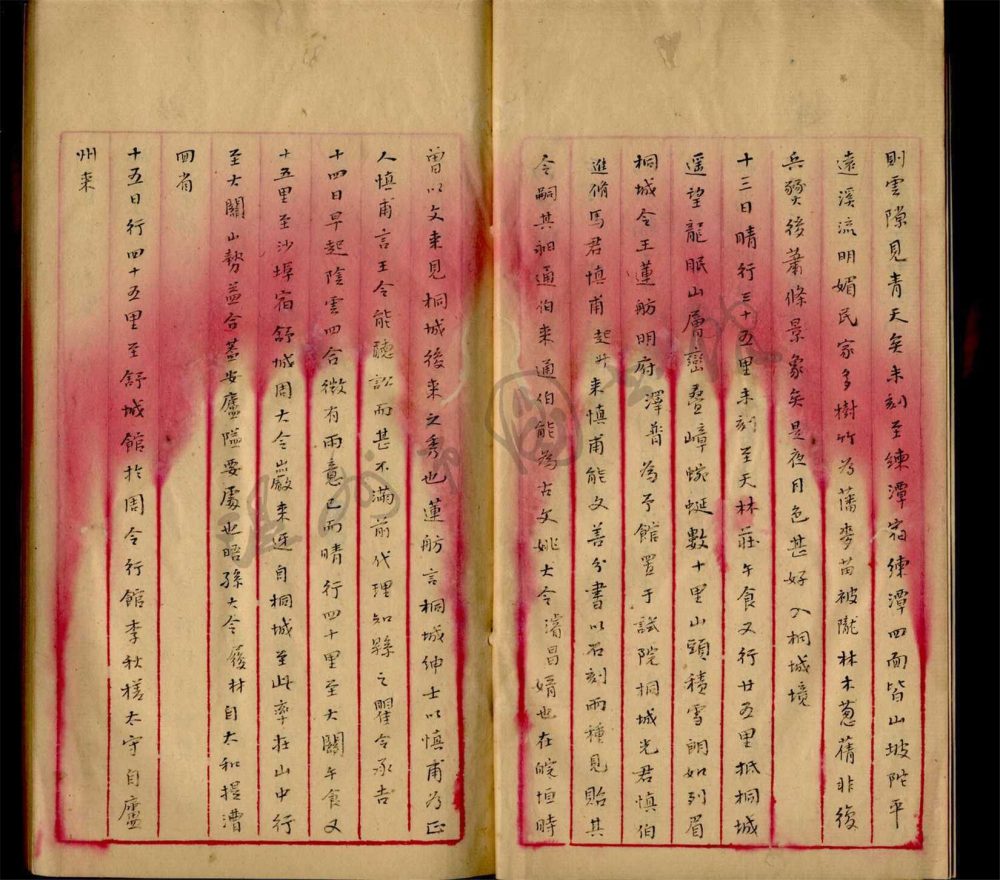 則雲隙見青天矣未刻至練潭宿練潭四面皆山坡陀平
遠溪流明媚民家多樹竹為藩麥苗被隴林木蔥蒨非復
兵燹後蕭條景象矣是夜月色甚好入桐城境
十三日晴行三十五里未刻至天林莊午食又行廿五里抵桐城
遥望龍眠山層巒疊嶂蜿蜒數十里山頭積雪朗如列眉
桐城令王蓮舫明府澤普為予館置于試院桐城光君慎伯
進脩馬君慎甫起升来慎甫能文善分書以石刻兩種見貽其
令嗣其昶通伯来通伯能為古文姚大令濬昌婿也在皖垣時
曾以文来見桐城後来之秀也蓮舫言桐城紳士以慎甫為正
人慎甫言王令能聽訟而甚不滿前代理知縣之瞿令承吉
十四日早起陰雲四合微有雨意已而晴行四十里至大關午食又
十五里至沙埠宿舒城周大令巖来迓自桐城至此率在山中行
至大關山勢益合蓋安廬隘要處也晤孫大令履林自太和提漕
回省
十五日行四十五里至舒城館於周令行館李秋槎太守自廬
州来